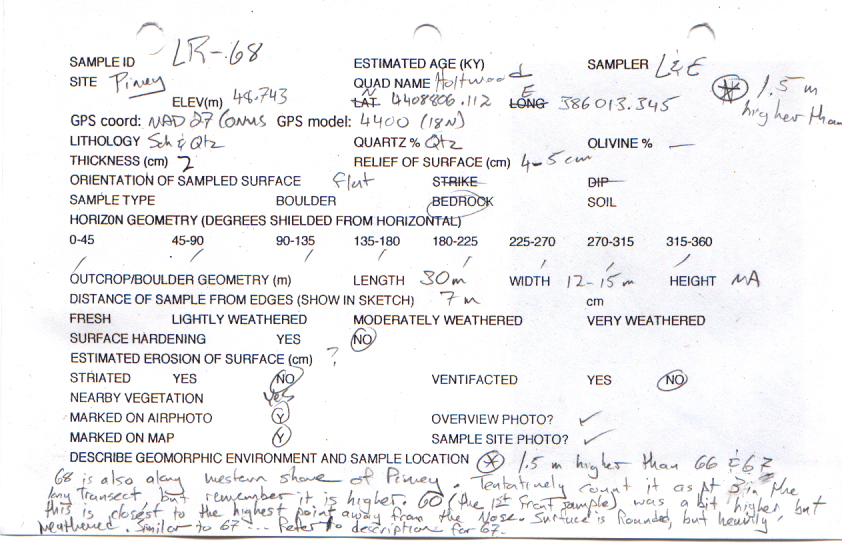 SAMPLE ID LR-68 ESTIMATED AGE (KY) SAMPLER L&E
SITE Piney QUAD NAME Holtwood
ELEV(m) 48.743 LAT N 4408806.112 LONG E 386013.345 * 1.5 m higher than
GPS coord: NAD 27 CONUS GPS model: 4400 (18N)
LITHOLOGY Sch & Qtz QUARTZ % Qtz OLIVINE % —
THICKNESS (cm) 2 RELIEF OF SURFACE (cm) 4-5 cm
ORIENTATION OF SAMPLED SURFACE flat STRIKE DIP
SAMPLE TYPE BOULDER BEDROCK SOIL
HORIZON GEOMETRY (DEGREES SHIELDED FROM HORIZONTAL)
0-45 45-90 90-135 135-180 180-225 225-270 270-315 315-360
/ / / / / / / /
OUTCROP/BOULDER GEOMETRY (m) LENGTH 30m WIDTH 12-15m HEIGHT NA
DISTANCE OF SAMPLE FROM EDGES (SHOW IN SKETCH) 7 m cm
FRESH LIGHTLY WEATHERED MODERATELY WEATHERED VERY WEATHERED
SURFACE HARDENING YES NO
ESTIMATED EROSION OF SURFACE (cm) ?
STRIATED YES NO VENTIFACTED YES NO
NEARBY VEGETATION Yes
MARKED ON AIRPHOTO Y OVERVIEW PHOTO? ✓
MARKED ON MAP Y SAMPLE SITE PHOTO? ✓
DESCRIBE GEOMORPHIC ENVIRONMENT AND SAMPLE LOCATION * 1.5 m higher than 66 & 67
68 is also along western shore of Piney. Tentatively count it as pt 3 in the
long Transect, but remember it is higher. 60 (the 1st front sample) was a bit higher, but
this is closest to the highest point away from the Nose. Surface is Rounded, but heavily
weathered. Similar to 67... Refer to description for 67.